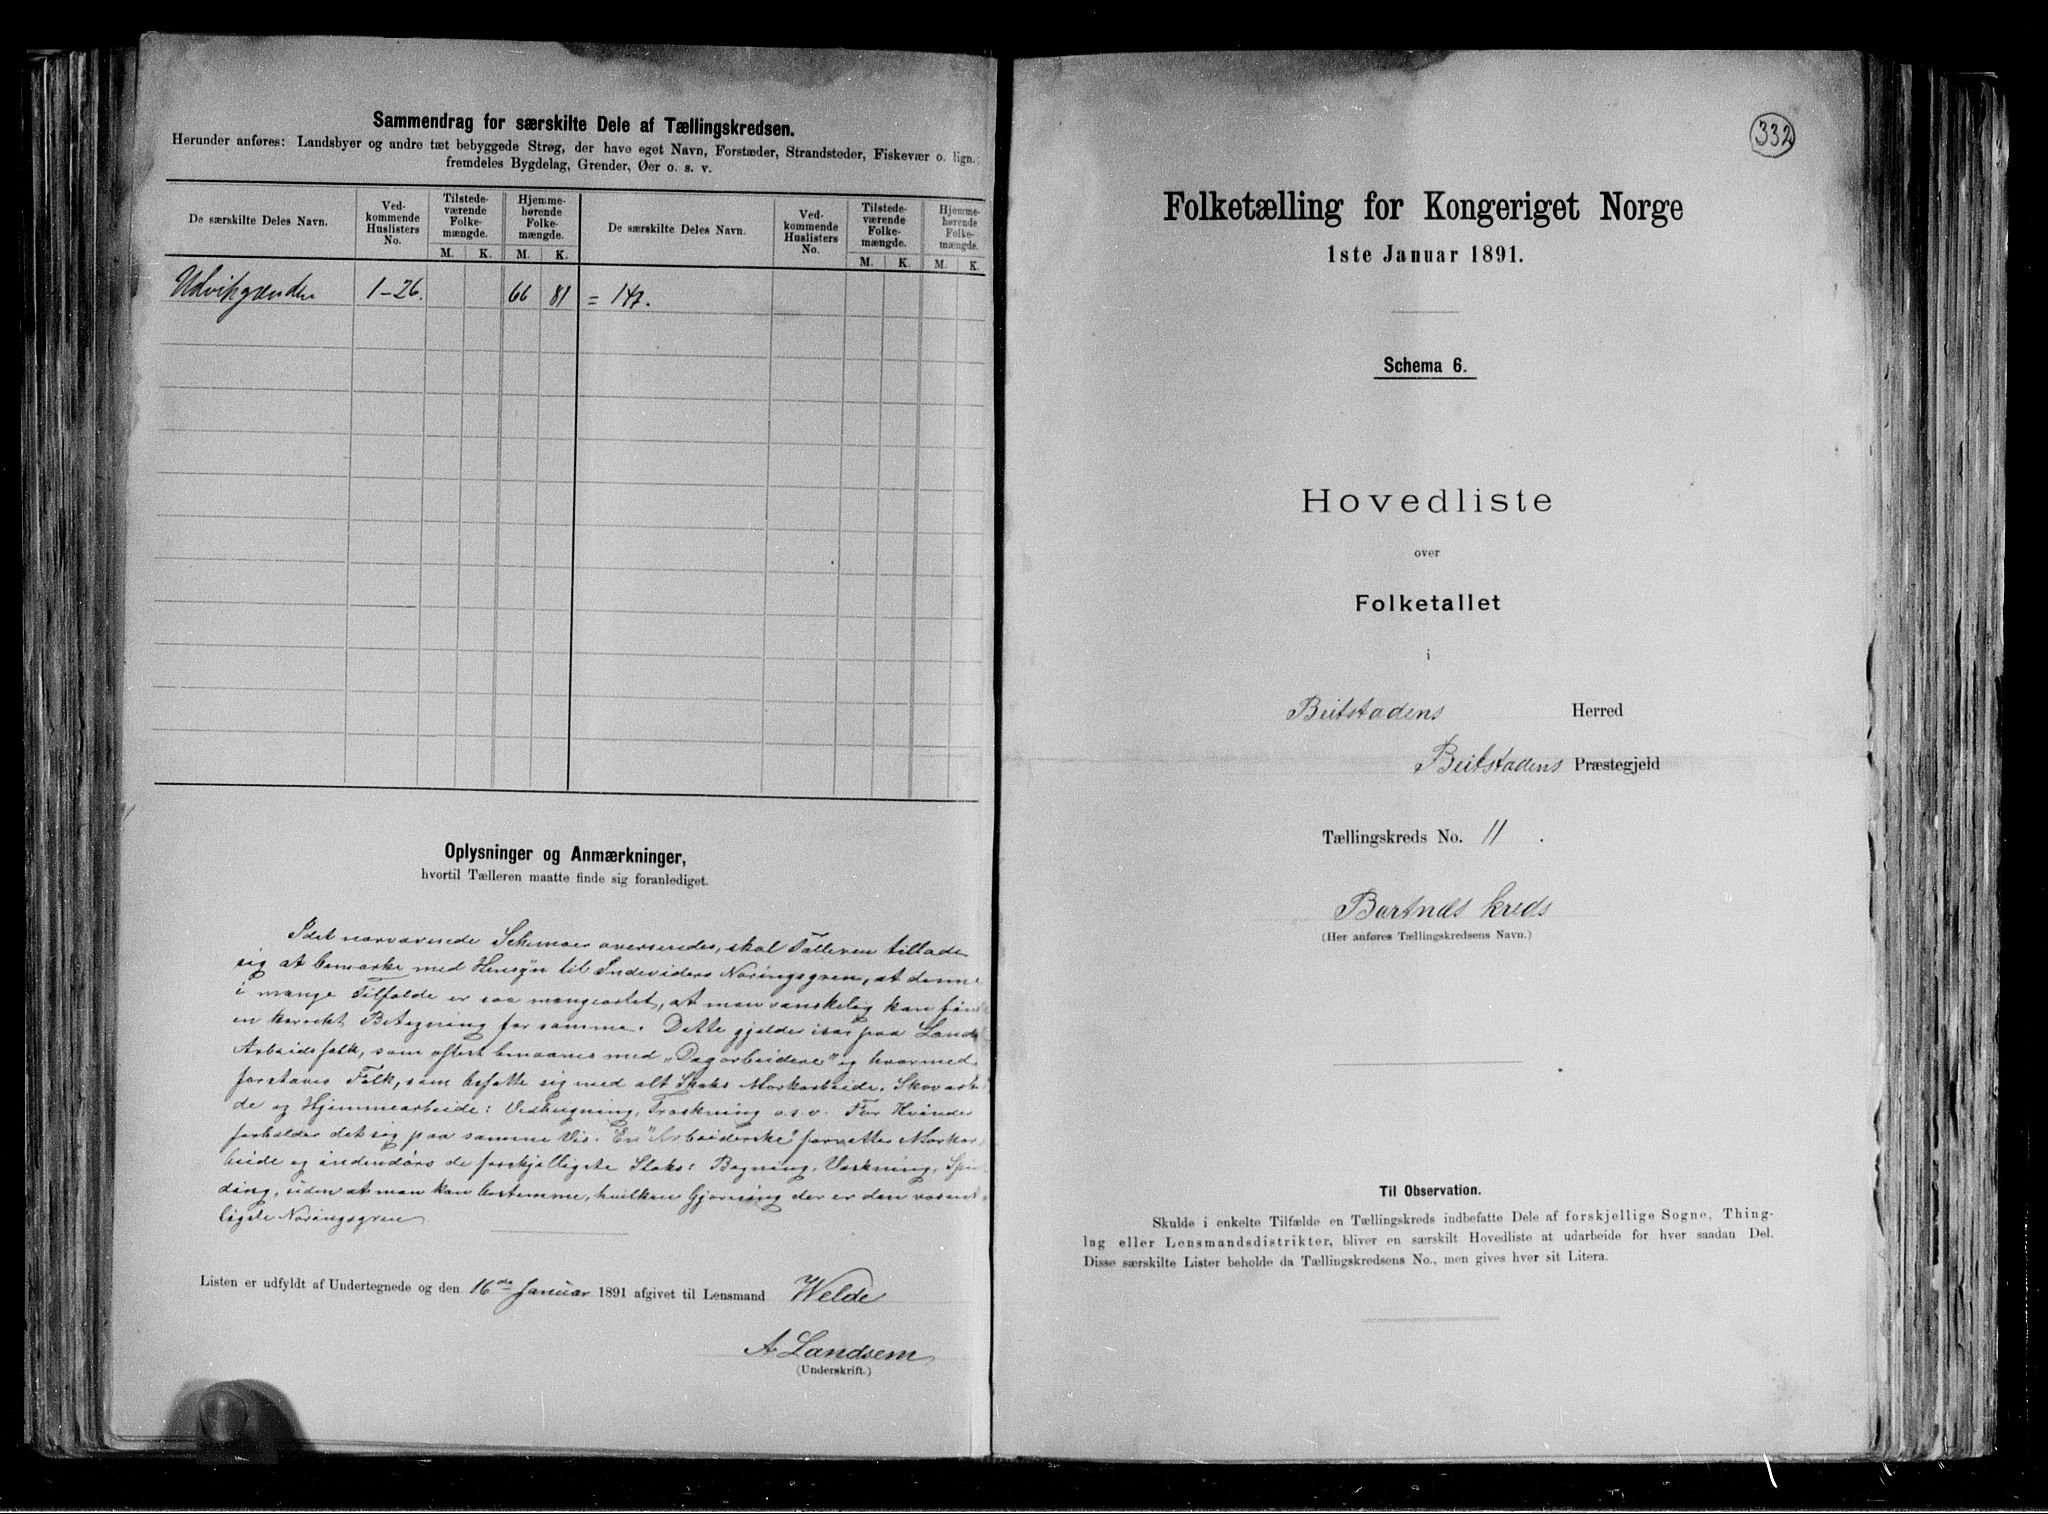 Sammendrag for særskilte Dele af Tællingskredsen.
Herunder anføres: Landsbyer og andre tæt bebyggede Strøg, der have eget Navn, Forstæder, Strandsteder, Fiskevær o. lign.;
fremdeles Bygdelag, Grender, Øer o. s. v.
De særskilte Deles Navn. Ved-kommende Huslisters No. Tilstede-værende Folke-mængde. Hjemme-hørende Folke-mængde. De særskilte Deles Navn. Ved-kommende Huslisters No. Tilstede-værende Folke-mængde. Hjemme-hørende Folke-mængde.
M. K. M. K. M. K. M. K.
Udvikgrenden 1-26. 66 81 = 147.
Oplysninger og Anmærkninger,
hvortil Tælleren maatte finde sig foranlediget.
Idet nærværende Schemaer oversendes, skal Tælleren tillade
sig at bemærke med Hensyn til Individers Næringsgren, at denne
i mange Tilfælde er saa mangeartet, at man vanskelig kan finde
en korrekt Betegning for samme. Dette gjelder især paa Lands
Arbeidsfolk, som oftest benævnes med "Dagarbeidere" og hvormed
forstaaes Folk, som befatte sig med alt Slags Markarbeide, Skovarbei
de og Hjemmearbeide: Vedhugning, Træskning o.s.v. For Kvinder
forholder det sig paa samme Vis. En "Arbeiderske" forretter Markar
beide og indendørs de forskjelligste Slags: Bagning, Vaskning, Spin
ding, uden at man kan bestemme, hvilken Gjerning der er den væsent-
ligste Næringsgren
Listen er udfyldt af Undertegnede og den 16de Januar 1891 afgivet til Lensmand Welde
A Landsem
(Underskrift.)
332
Folketælling for Kongeriget Norge
1ste Januar 1891.
Schema 6.
Hovedliste
over
Folketallet
i
Beitstadens Herred
Beitstadens Præstegjeld
Tællingskreds No. 11.
Bartnæs kreds
(Her anføres Tællingskredsens Navn.)
Til Observation.
Skulde i enkelte Tilfælde en Tællingskreds indbefatte Dele af forskjellige Sogne, Thing-
lag eller Lensmandsdistrikter, bliver en særskilt Hovedliste at udarbeide for hver saadan Del.
Disse særskilte Lister beholde da Tællingskredsens No., men gives hver sit Litera.